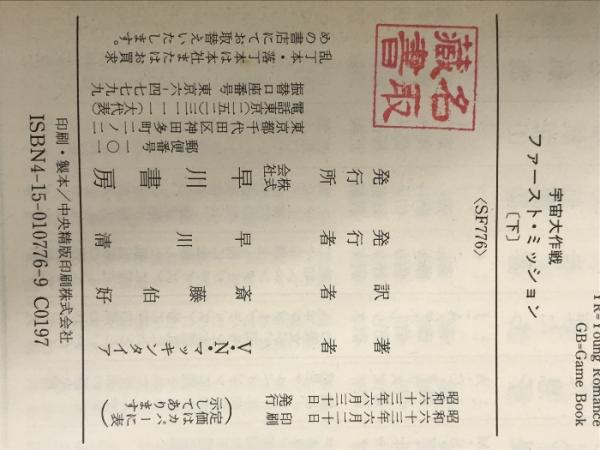 YR=Young Romance
GB=Game Book
宇宙大作戦
ファースト・ミッション
〔下〕
〈SF776〉
昭和六十三年六月二十日 印刷
昭和六十三年六月三十日 発行
(定価はカバーに表示してあります)
著者 V・N・マッキンタイア
訳者 斎藤伯好
発行者 早川清
発行所 株式会社 早川書房
郵便番号 一〇一
東京都千代田区神田多町二ノ二
電話 東京(二五二)三一一一(大代表)
振替口座番号 東京・六-四七七九九
乱丁本・落丁本は本社またはお買求
めの書店にてお取替えいたします。
印刷・製本/中央精版印刷株式会社
ISBN4-15-010776-9 C0197
名取
蔵書